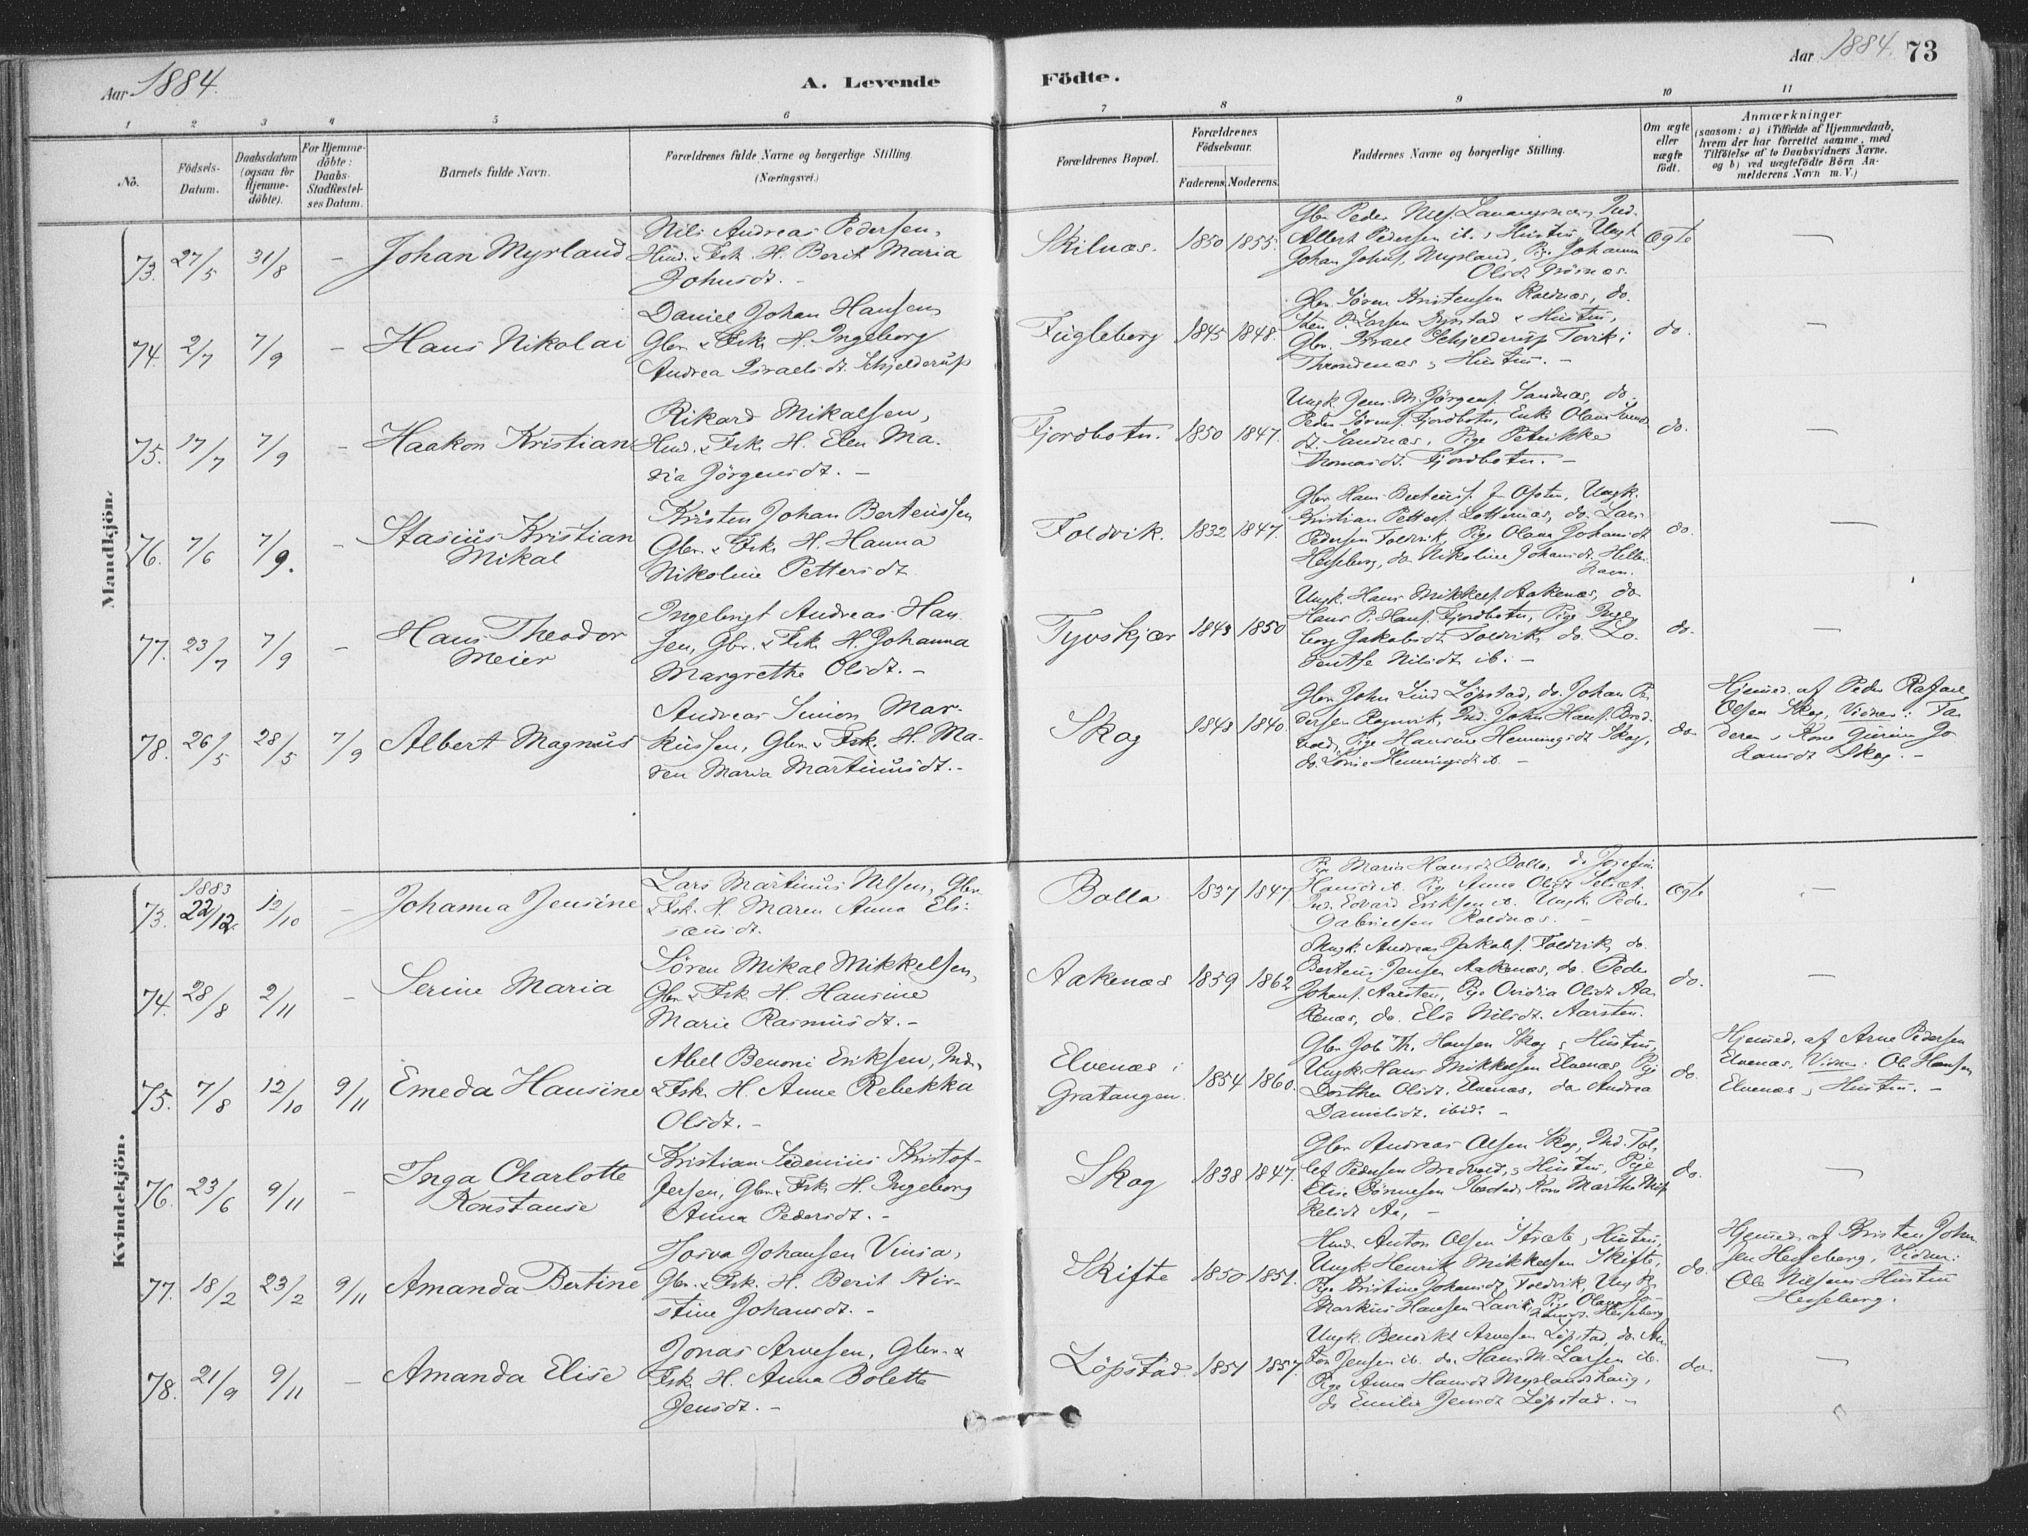 Aar 1884.
A. Levende
Födte.
Aar 1884. 73
1 2 3 4 5 6 7 8 9 10 11
No.
Födsels-
Datum.
Daabsdatum
(ogsaa for
Hjemme-
döbte).
For Hjemme-
döbte:
Daabs-
Stadfæstel-
ses Datum.
Barnets fulde Navn.
Forældrenes fulde Navne og borgerlige Stilling
(Næringsvei.)
Forældrenes Bopæl.
Forældrenes
Födselsaar.
Faderens. Moderens.
Faddernes Navne og borgerlige Stilling.
Om ægte
eller
uægte
født.
Anmærkninger
(saasom: a) i Tilfælde af Hjemmedaab,
hvem der har forrettet samme, med
Tilföielse af to Daabsvidners Navne.
og b) ved uægtefödte Börn An-
melderens Navn m. V.)
Mandkjön.
73. 27/5 31/8 - Johan Myrland
Nils Andreas Pedersen,
Ind. & Fsk. H. Berit Maria
Johnsdt. -
Skilnæs. 1850 1855.
Albert Pedersen ib. & Hustru, Ungk.
Johan Johns. Myrland, Pige Johanna
Ægte —
74. 2/7 7/9 - Hans Nikolai
Daniel Johan Hansen
Gbr. & Fsk. H. Ingeborg
Andrea Israelsdt. Schjelderup
Fugleberg 1845 1848.
Gbr. Søren Kristensen Roldnæs, do.
Sten P. Larsen Grøstad & Hustru,
Gbr. Israel Schjelderup Tovik i
Throndenæs & Hustru. -
do. —
75. 17/7 7/9 - Haakon Kristian
Rikard Mikalsen,
Ind. & Fsk. H. Elen Ma-
ria Jörgensdt. -
Fjordbotn. 1850 1847.
Ungk. Jens M. Jörgens. Sandnæs, do.
Peder Sörens. Fjordbotn, Enke Olava
dt. Sandnæs, Pige Petrikke
Thomasdt. Fjordbotn. -
do. —
76. 7/6 7/9. - Stasius Kristian
Mikal
Kristen Johan Berteussen
Gbr. & Fsk. H. Hanna
Nikoline Pettersdt.
Foldvik. 1832 1847.
Kristian Petters. Lotternæs, do. Lars
Pedersen Foldvik, Pige Olava Johansdt.
Hesseberg, do. Nikoline Johansdt. Hellar-
do. —
77. 23/7 7/9 - Hans Theodor
Meier
Ingebrigt Andreas Han-
sen, Gbr. & Fsk. H. Johanna
Margrethe Olsdt. -
Tyvskjær 1843 1850
Ungk. Hans Mikkels. Aakenæs, do.
Hans P. Hans. Fjordbotn, Pige Inge-
borg Jakobsdt. Foldvik, do. Lo-
rentse Nilsdt. ib. -
do. —
78. 26/5 28/5 7/9 Albert Magnus
Andreas Simon Mar-
kussen, Gbr. & Fsk. H. Ma-
ren Maria Martinusdt. -
Skog 1843 1840.
Gbr. John Lind Löpstad, do. Johan Pe-
dersen Rognvik, Ind. John Hans. Bred-
vold, Pige Hansine Henningsdt. Skog,
do. Henningsdt. ib. -
do.
Hjemmed. af Peder Rafael
Olsen Skog, Vidner: Fa-
deren & Kone Jo-
hansdt. Skog. -
Kvindekjön.
73. 1883 22/12. 12/10 - Johanna Jensine
Lars Martinus Nilsen, Gbr.
& Fsk. H. Maren Anna Eli-
sæusdt.
Balla. 1837 1847.
Pige Maria Hansdt. Balla, do. Josefine
Hansdt. ib. Pige Anna Olsdt. Selsæt.
Ind. Edvard Eriksen ib. Ungk. Peder
Gabrielsen Roldnæs. -
Ægte -
74. 28/8 2/11 - Serine Maria
Søren Mikal Mikkelsen,
Gbr. & Fsk. H. Hansine
Marie Rasmusdt. -
Aakenæs 1859 1862
Ungk. Andreas Jakobs. Foldvik, do.
Berteus Jensen Aakenæs, do. Peder
Johans. Aarsten, Pige Ovidia Olsdt. Aa-
kenæs, do. Else Nilsdt. Aarsten.
do. —
75. 7/8 12/10 9/11 Emeda Hansine
Abel Benoni Eriksen, Ind.
& Fsk. H. Anne Rebekka
Olsdt. -
Elvenæs i
Gratangen. 1854 1860.
Gbr. Job Th. Hansen Skog & Hustru,
Ungk. Hans Mikkelsen Elvenæs, Pige
Dorthea Olsdt. Elvenæs, do. Andrea
Danielsdt. ibid. -
do.
Hjemmed. af Arne Pedersen
Elvenæs, Vidner: Ole Hansen
Elvenæs & Hustru. -
76. 23/6 9/11 - Inga Charlotte
Konstanse
Kristian Sedenius Kristof-
fersen, Gbr. & Fsk. H. Ingeborg
Anna Pedersdt. -
Skog 1838 1847.
Gbr. Andreas Olsen Skog, Ind. Tol-
lef Pedersen Bredvold & Hustru, Pige
Elise Tønnesen Kone Martha Mik-
kelsdt. Aa, -
do. —
77. 18/2 23/2 9/11 Amanda Bertine
Josva Johansen Vinia,
Gbr. & Fsk. H. Berit Kir-
stine Johansdt. -
Skifte 1850 1851.
Ind. Anton Olsen & Hustru,
Ungk. Henrik Mikkelsen Skifte,
Pige Kristine Johansdt. Foldvik, Ungk.
Markus Hansen Lavik, Pige Olava Jo-
hansdt. Hesseberg
do.
Hjemmed. af Kristen Johan-
sen Hesseberg, Vidner:
Ole Nilsen & Hustru
Hesseberg.
78. 21/9 9/11 - Amanda Elise
Jonas Arvesen, Gbr. &
Fsk. H. Anna Bolette
Jensdt. -
Löpstad. 1851 1857.
Ungk. Benedikt Arvesen Löpstad, do. An-
ton Jensen ib. do. Hans M. Larsen ib.
Pige Anna Hansdt. Myrlandshaug,
do. Emilie Jensdt. Löpstad. -
do. —